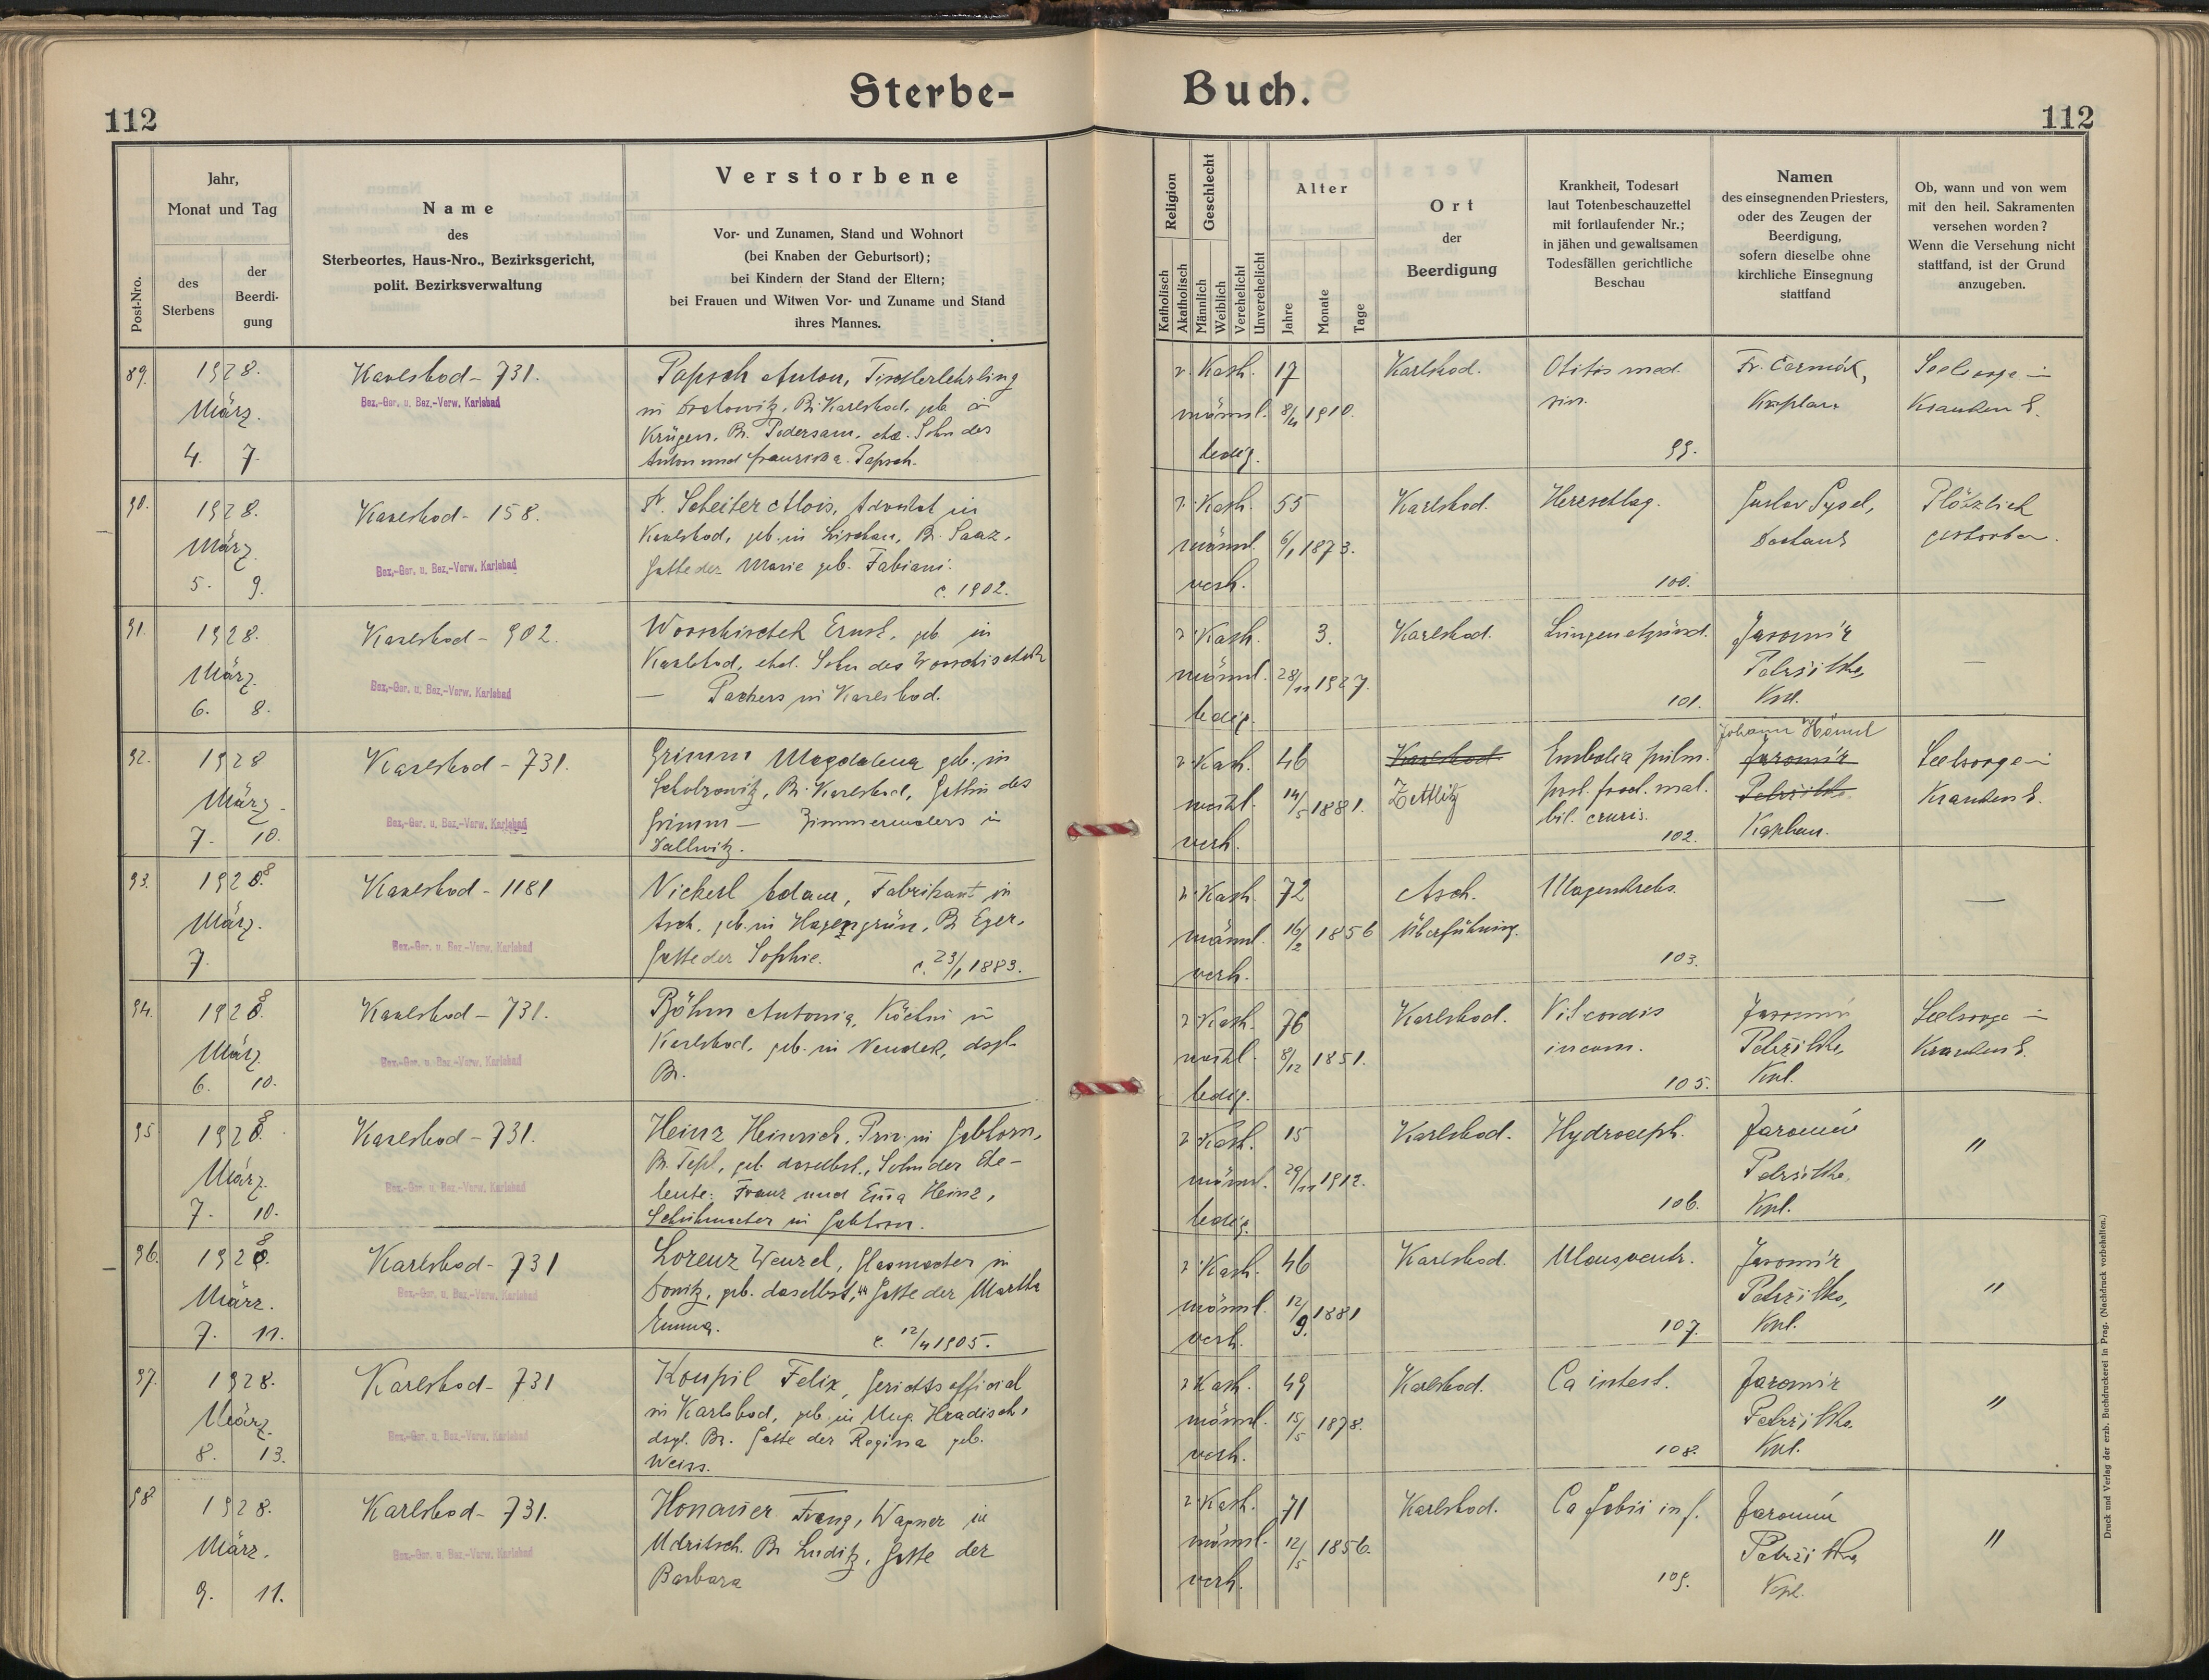 Sterbe-
Buch.
112
112
Post-Nro.
Jahr,
Monat und Tag
des
Sterbens
der
Beerdi-
gung
Name
des
Sterbeortes, Haus-Nro., Bezirksgericht,
polit. Bezirksverwaltung
Verstorbene
Vor- und Zunamen, Stand und Wohnort
(bei Knaben der Geburtsort);
bei Kindern der Stand der Eltern;
bei Frauen und Witwen Vor- und Zuname und Stand
ihres Mannes.
Religion
Katholisch
Akatholisch
Geschlecht
Männlich
Weiblich
Verehelicht
Unverehelicht
Alter
Jahre
Monate
Tage
Ort
der
Beerdigung
Krankheit, Todesart
laut Totenbeschauzettel
mit fortlaufender Nr.;
in jähen und gewaltsamen
Todesfällen gerichtliche
Beschau
Namen
des einsegnenden Priesters,
oder des Zeugen der
Beerdigung,
sofern dieselbe ohne
kirchliche Einsegnung
stattfand
Ob, wann und von wem
mit den heil. Sakramenten
versehen worden?
Wenn die Versehung nicht
stattfand, ist der Grund
anzugeben.
89.
1928.
März.
4. 7.
Karlsbad - 731.
Bez.-Ger. u. Bez.-Verw. Karlsbad
Papsch Anton, Tischlerlehrling
in Br. Karlsbad, geb. in
Krügen, Br. Podersam, ehel. Sohn des
Anton und Franziska Papsch.
r. Kath.
männl.
ledig.
17
8/4 1910.
Karlsbad.
Otitis med.
sin.
99.
Fr. Čermák,
Kaplan
Seelsorge i
Kranken h.
90.
1928.
März.
5. 9.
Karlsbad - 158.
Bez.-Ger. u. Bez.-Verw. Karlsbad
Dr. Scheiter Alois, Advokat in
Karlsbad, geb. in Lischau, Br. Saaz,
Gatte der Marie geb. Fabiani.
c. 1902.
r. Kath.
männl.
verh.
55
6/1 1873.
Karlsbad.
Herzschlag.
100.
Gustav Sysel,
Dechant
Plötzlich
gestorben.
91.
1928.
März.
6. 8.
Karlsbad - 902.
Bez.-Ger. u. Bez.-Verw. Karlsbad
Worschischek Ernst, geb. in
Karlsbad, ehel. Sohn des Worschischek
— Packers in Karlsbad.
r. Kath.
männl.
ledig.
3.
28/11 1927.
Karlsbad.
Lungenentzünd.
101.
Jaromír
Petržilka,
Kpl.
—
92.
1928
März.
7. 10.
Karlsbad - 731.
Bez.-Ger. u. Bez.-Verw. Karlsbad
Grimm Magdalena geb. in
Schobrowitz, Br. Karlsbad, Gattin des
Grimm — Zimmermalers in
Dallwitz.
r. Kath.
weibl.
verh.
46
14/5 1881.
Karlsbad
Zettlitz
Embolia pulm.
post fract. mal.
bil. cruris.
102.
Johann Hämel
Jaromír
Petržilka
Kaplan.
Seelsorge i
Kranken h.
93.
1928.
März.
7.
Karlsbad - 1181
Bez.-Ger. u. Bez.-Verw. Karlsbad
Nickerl Adam, Fabrikant in
Asch, geb. in Hagengrün, Br. Eger,
Gatte der Sophie.
c. 23/1 1883.
r. Kath.
männl.
verh.
72
16/2 1856
Asch.
Überführung.
Magenkrebs.
103.
—
94.
1928.
März.
6. 10.
Karlsbad - 731.
Bez.-Ger. u. Bez.-Verw. Karlsbad
Böhm Antonia, Köchin in
Karlsbad, geb. in Neudek, dsgl.
Br.
r. Kath.
weibl.
ledig.
76
8/12 1851.
Karlsbad.
Vit. cordis
incom.
105.
Jaromír
Petržilka,
Kpl.
Seelsorge i
Kranken h.
95
1928.
März.
7. 10.
Karlsbad - 731.
Bez.-Ger. u. Bez.-Verw. Karlsbad
Heinz Heinrich, Priv. in Gabhorn,
Br. Tepl, geb. daselbst, Sohn der Ehe-
leute: Franz und Emma Heinz,
Schuhmacher in Gabhorn.
r. Kath.
männl.
ledig.
15
29/11 1912.
Karlsbad.
Hydroceph.
106.
Jaromír
Petržilka,
Kpl.
"
96.
1928.
März.
7. 11.
Karlsbad - 731
Bez.-Ger. u. Bez.-Verw. Karlsbad
Lorenz Wenzel, Glasmacher in
Donitz, geb. daselbst, Gatte der Martha
Emma.
c. 12/4 1905.
r. Kath.
männl.
verh.
46
12/9. 1881
Karlsbad.
Ulcus ventr.
107.
Jaromír
Petržilka,
Kpl.
"
97.
1928.
März.
8. 13.
Karlsbad - 731
Bez.-Ger. u. Bez.-Verw. Karlsbad
Koupil Felix, Gerichtsofficial
in Karlsbad, geb. in Ung. Hradisch,
dsgl. Br. Gatte der Regina geb.
Weiss.
r. Kath.
männl.
verh.
49
15/5 1878.
Karlsbad.
Ca intest.
108.
Jaromír
Petržilka
Kpl.
"
98
1928.
März.
9. 11.
Karlsbad - 731.
Bez.-Ger. u. Bez.-Verw. Karlsbad
Honauer Franz, Wagner in
Udritsch, Br. Luditz, Gatte der
Barbara
r. Kath.
männl.
verh.
71
12/5 1856.
Karlsbad.
Ca labii inf.
109.
Jaromír
Petržilka
Kpl.
"
Druck und Verlag der erzb. Buchdruckerei in Prag. (Nachdruck vorbehalten.)